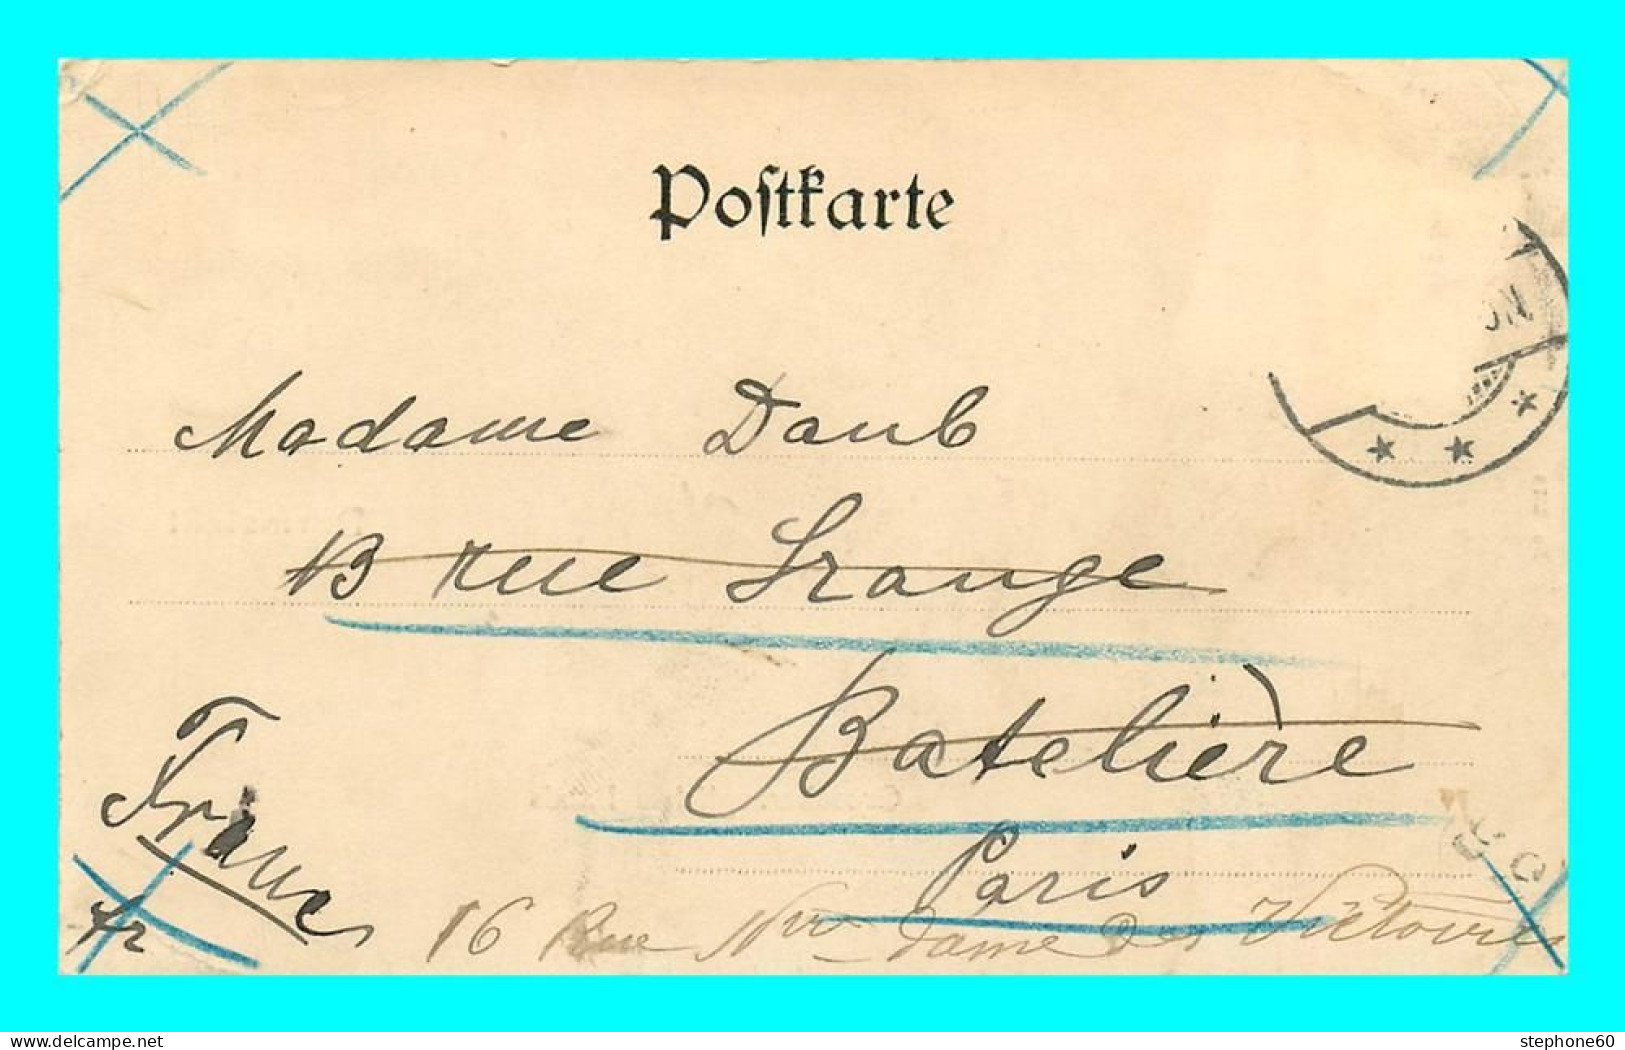 Postkarte
Madame Daub
13 rue Grange
Batelière
Paris
France
16 Rue Nre Dame des Victoires
www.delcampe.net
stephone60